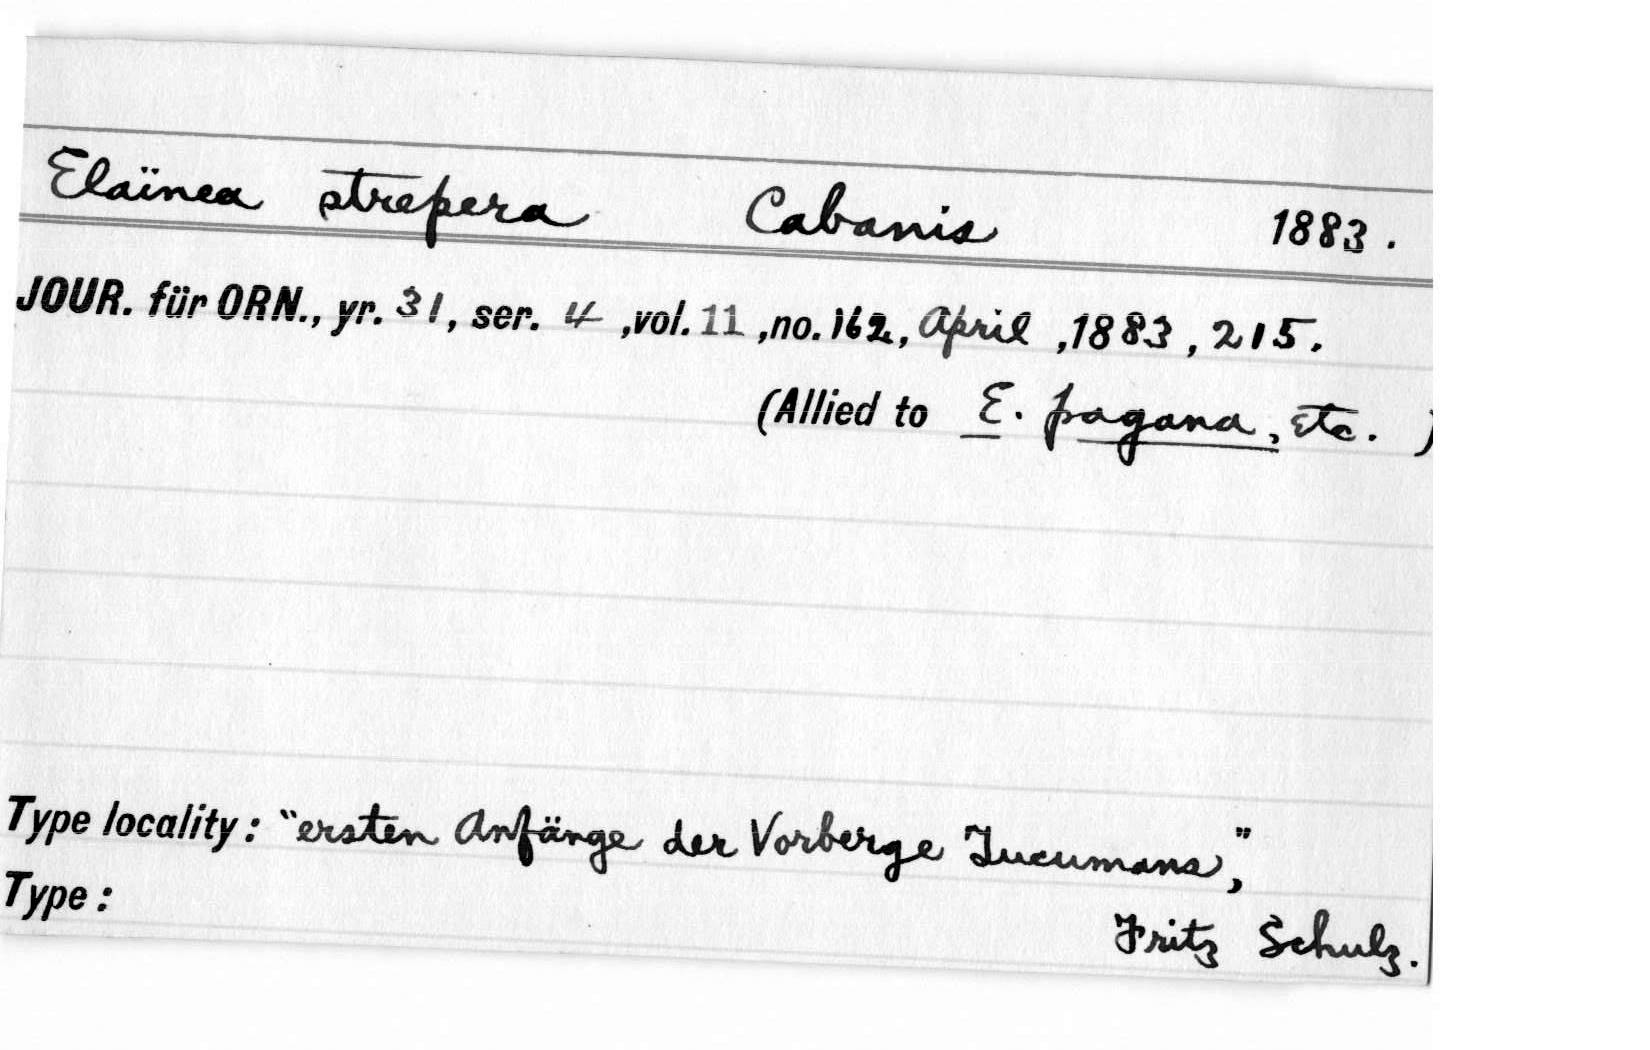 Elaïnea strepera Cabanis 1883.
JOUR. für ORN., yr. 31, ser. 4, vol. 11, no. 162, April, 1883, 215.
(Allied to E. pagana, etc. )
Type locality: "ersten Anfänge der Vorberge Tucumans,"
Type:
Fritz Schulz.